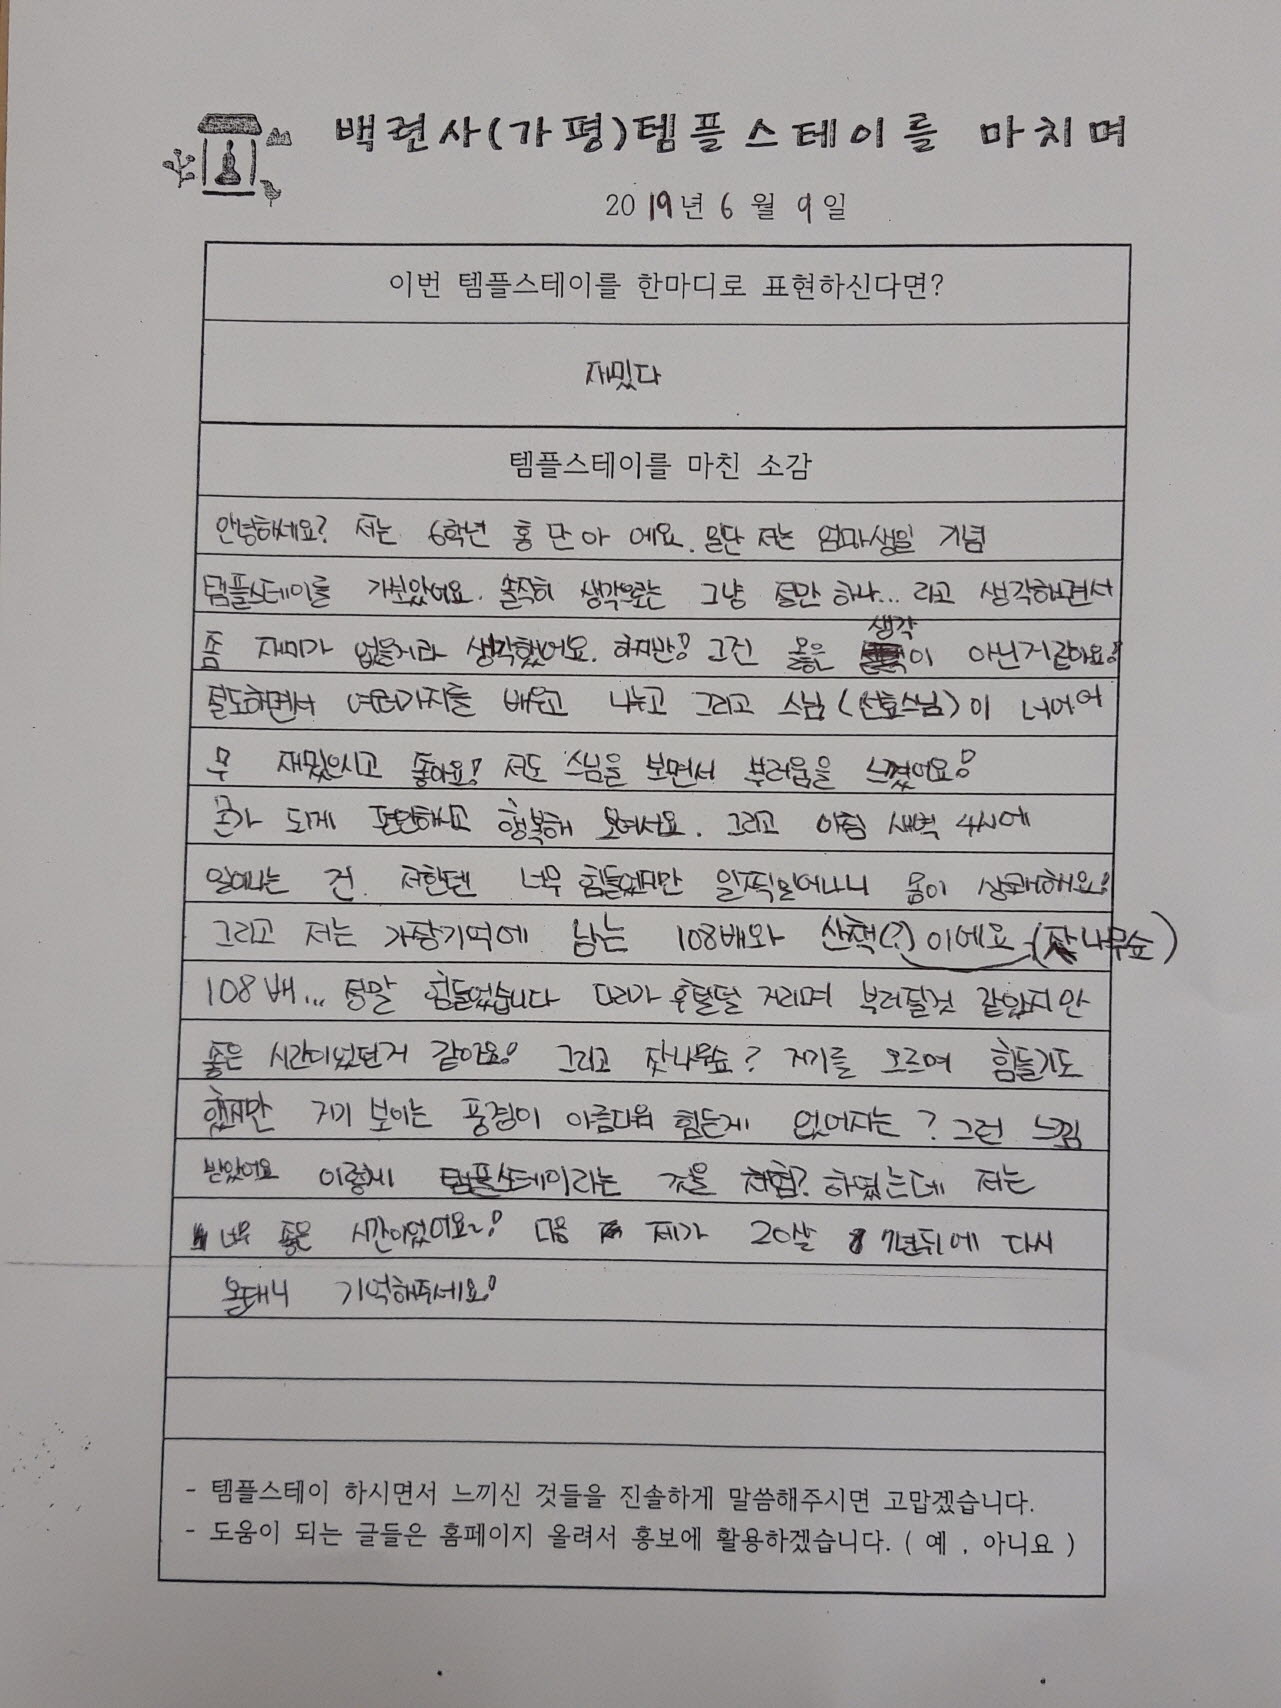 백련사(가평)템플스테이를 마치며
2019년 6월 9일
이번 템플스테이를 한마디로 표현하신다면?
재밌다
템플스테이를 마친 소감
안녕하세요? 저는 6학년 홍 단 아 에요. 일단 저는 엄마생일 기념
템플스테이를 가보았어요. 솔직히 생각으로는 그냥 절만 하나... 라고 생각하면서
좀 재미가 없을거라 생각했어요. 하지만! 그건 옳은 생각이 아닌거같아요!
절도하면서 여러가지를 배우고 나누고 그리고 스님 (선효스님)이 너어어
무 재밌으시고 좋아요! 저도 스님을 보면서 부러움을 느꼈어요!
되게 편안하시고 행복해 보여서요. 그리고 아침 새벽 4시에
일어나는 건 저한텐 너무 힘들었지만 일찍일어나니 몸이 상쾌해요!
그리고 저는 가장기억에 남는 108배와 산책(?)이에요 (잣나무숲)
108배... 정말 힘들었습니다 다리가 후덜덜 거리며 부러질것 같았지만
좋은 시간이었던거 같아요! 그리고 잣나무숲? 거기를 오르며 힘들기도
했지만 거기 보이는 풍경이 아름다워 힘든게 없어지는? 그런 느낌
받았어요 이렇게 템플스테이라는 것을 체험? 하였는데 저는
너무 좋은 시간이었어요~! 다음 제가 20살 7년뒤에 다시
올테니 기억해주세요!
- 템플스테이 하시면서 느끼신 것들을 진솔하게 말씀해주시면 고맙겠습니다.
- 도움이 되는 글들은 홈페이지 올려서 홍보에 활용하겠습니다. ( 예 , 아니요 )